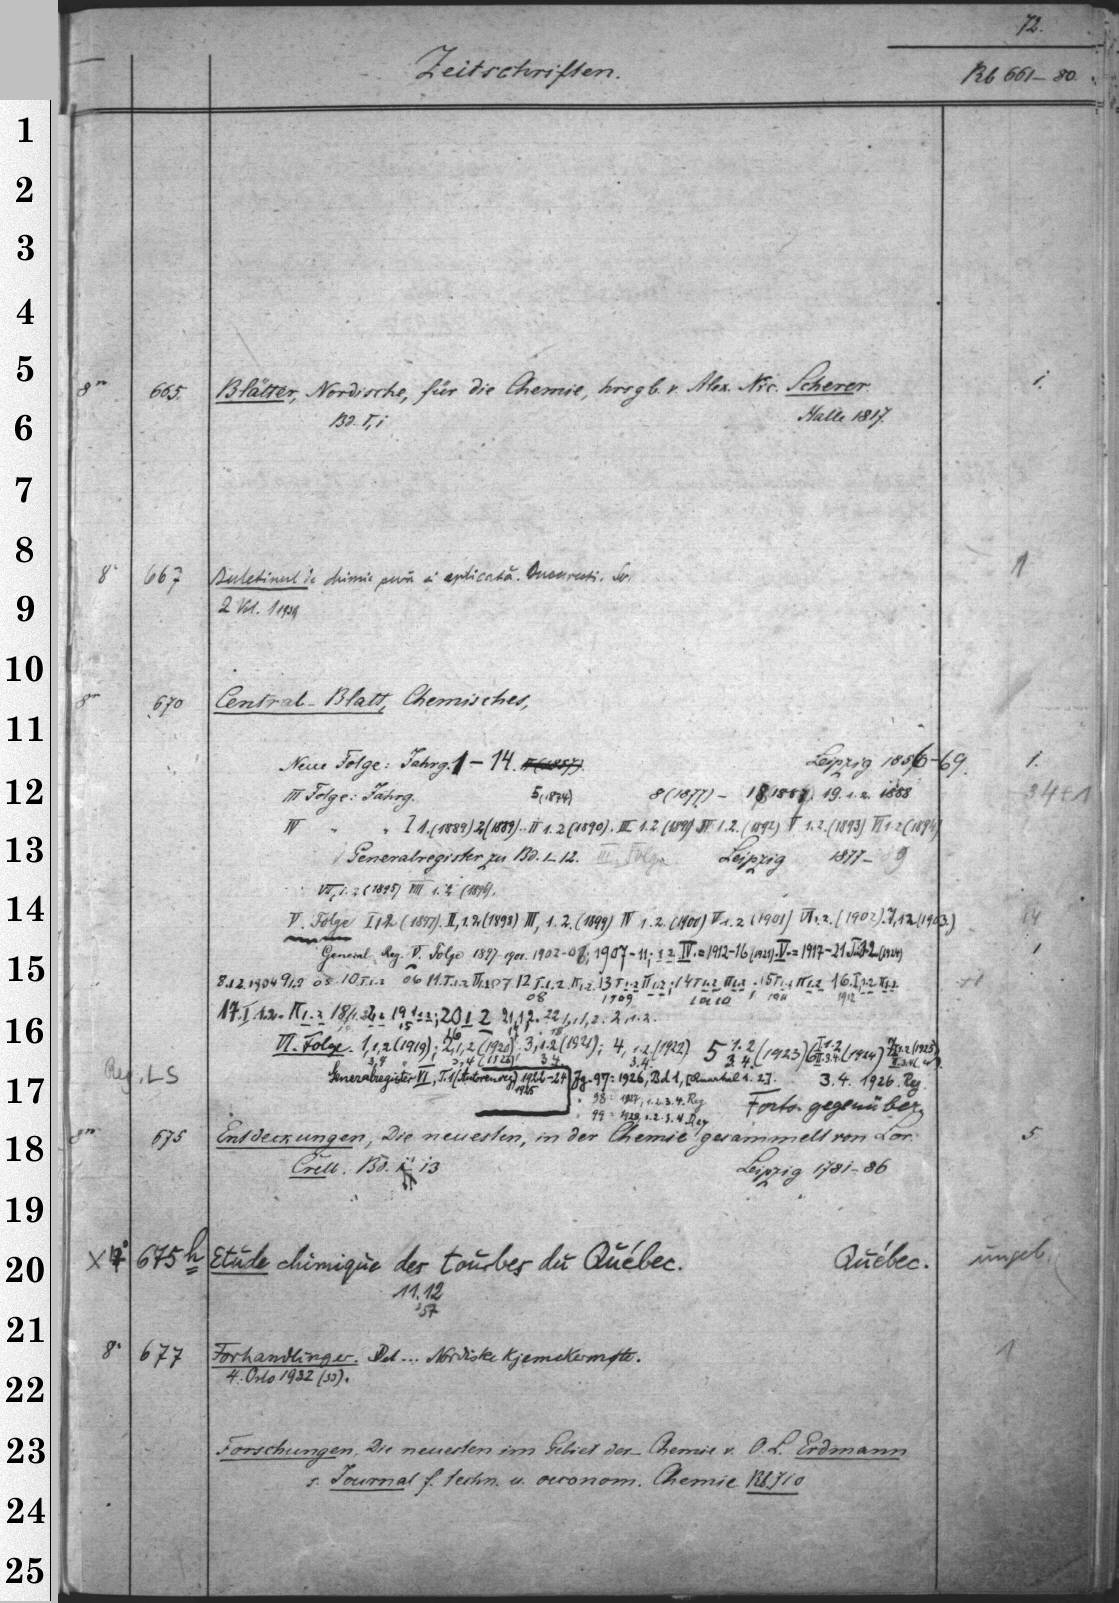 72.
Zeitschriften.
Rb 661–80.
1
2
3
4
5
8° 665. Blätter, Nordische, für die Chemie, hrsgb. v. Alex. Nic. Scherer. 1.
6
Bd. I,1 Halle 1817.
7
8
8° 667 Buletinul de chimie pură si aplicată. Bucuresti. 1
9
2 Vol. 1 1939
10
8° 670 Central-Blatt, Chemisches,
11
Neue Folge: Jahrg. 1–14. II (1857). Leipzig 1856–69. 1.
12
III Folge: Jahrg. 5 (1874) 8 (1877) – 18 1887, 19. 1.2. 1888 34+1
IV " " I 1. (1889) 2 (1889). II 1.2 (1890). III 1.2. (1891) IV 1.2. (1892) V 1.2. (1893) VI 1.2 (1894)
13
Generalregister zu Bd. 1–12. III. Folge Leipzig 1877– 9
VII, 1.2 (1895) VIII 1.2 (1896).
14
V. Folge I,1.2 (1897). II, 1.2 (1898) III, 1.2. (1899) IV 1.2. (1900) V 1.2 (1901) VI 1.2. (1902). 7,1.2 (1903.) 14
General. Reg. V. Folge 1897–1901. 1902–06; 1907–11; 1.2 IV = 1912–16 (1921). V = 1917–21 1
15
8.1.2.1904 9 1.2 05 10 I 1.2 06 11. I 1.2 II 1.2 07 12 I 1.2. II 1.2. 13 I 1.2 II 1.2; 14 I 1.2 II 1.2; 15 I 1.2 II 1.2 16. I 1.2 II 1.2 +1
08 1909 1910 1911 1912
17. I 1.2. II 1.2 18 19 1.2; 20 1 2 21,1.2. 22
16
VI. Folge. 1,1,2 (1919); 2,1,2 (1920). 3,1.2 (1921); 4, 1.2 (1922) 5 1.2 3.4. (1923) 6 (1924) 7 (1925)
3.4 3.4 3.4. 3.4.
17
Reg. LS Generalregister VI, T. 1 (Autorenreg.) 1922–24 1925 Jg. 97: 1926, Bd 1, [Quartal 1. 2]. 3.4. 1926. Reg
" 98 = 1927, 1.2.3.4. Reg
" 99 = 1928 1.2.3.4 Reg Forts. gegenüber,
18
8° 675 Entdeckungen, Die neuesten, in der Chemie gesammelt von Lor. 5.
Crell. Bd. 1 13 Leipzig 1781–86
19
20
X 4° 675 h Etude chimique des tourbes du Québec. Québec. ungeb.
11.12
'57
21
8° 677 Forhandlinger. Det ... Nordiske Kjemikermøte. 1
22
4. Oslo 1932 (33).
23
Forschungen, Die neuesten im Gebiet der Chemie v. O. L. Erdmann
s. Journal f. techn. u. oeconom. Chemie Rb 710
24
25